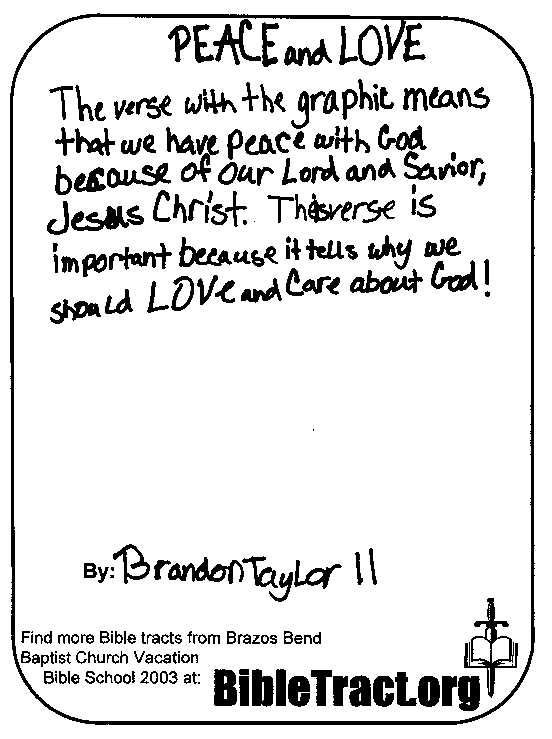 PEACE and LOVE
The verse with the graphic means
that we have peace with God
because of our Lord and Savior,
Jesus Christ. This verse is
important because it tells why we
should LOVE and Care about God!
By: Brandon Taylor 11
Find more Bible tracts from Brazos Bend
Baptist Church Vacation
Bible School 2003 at: BibleTract.org